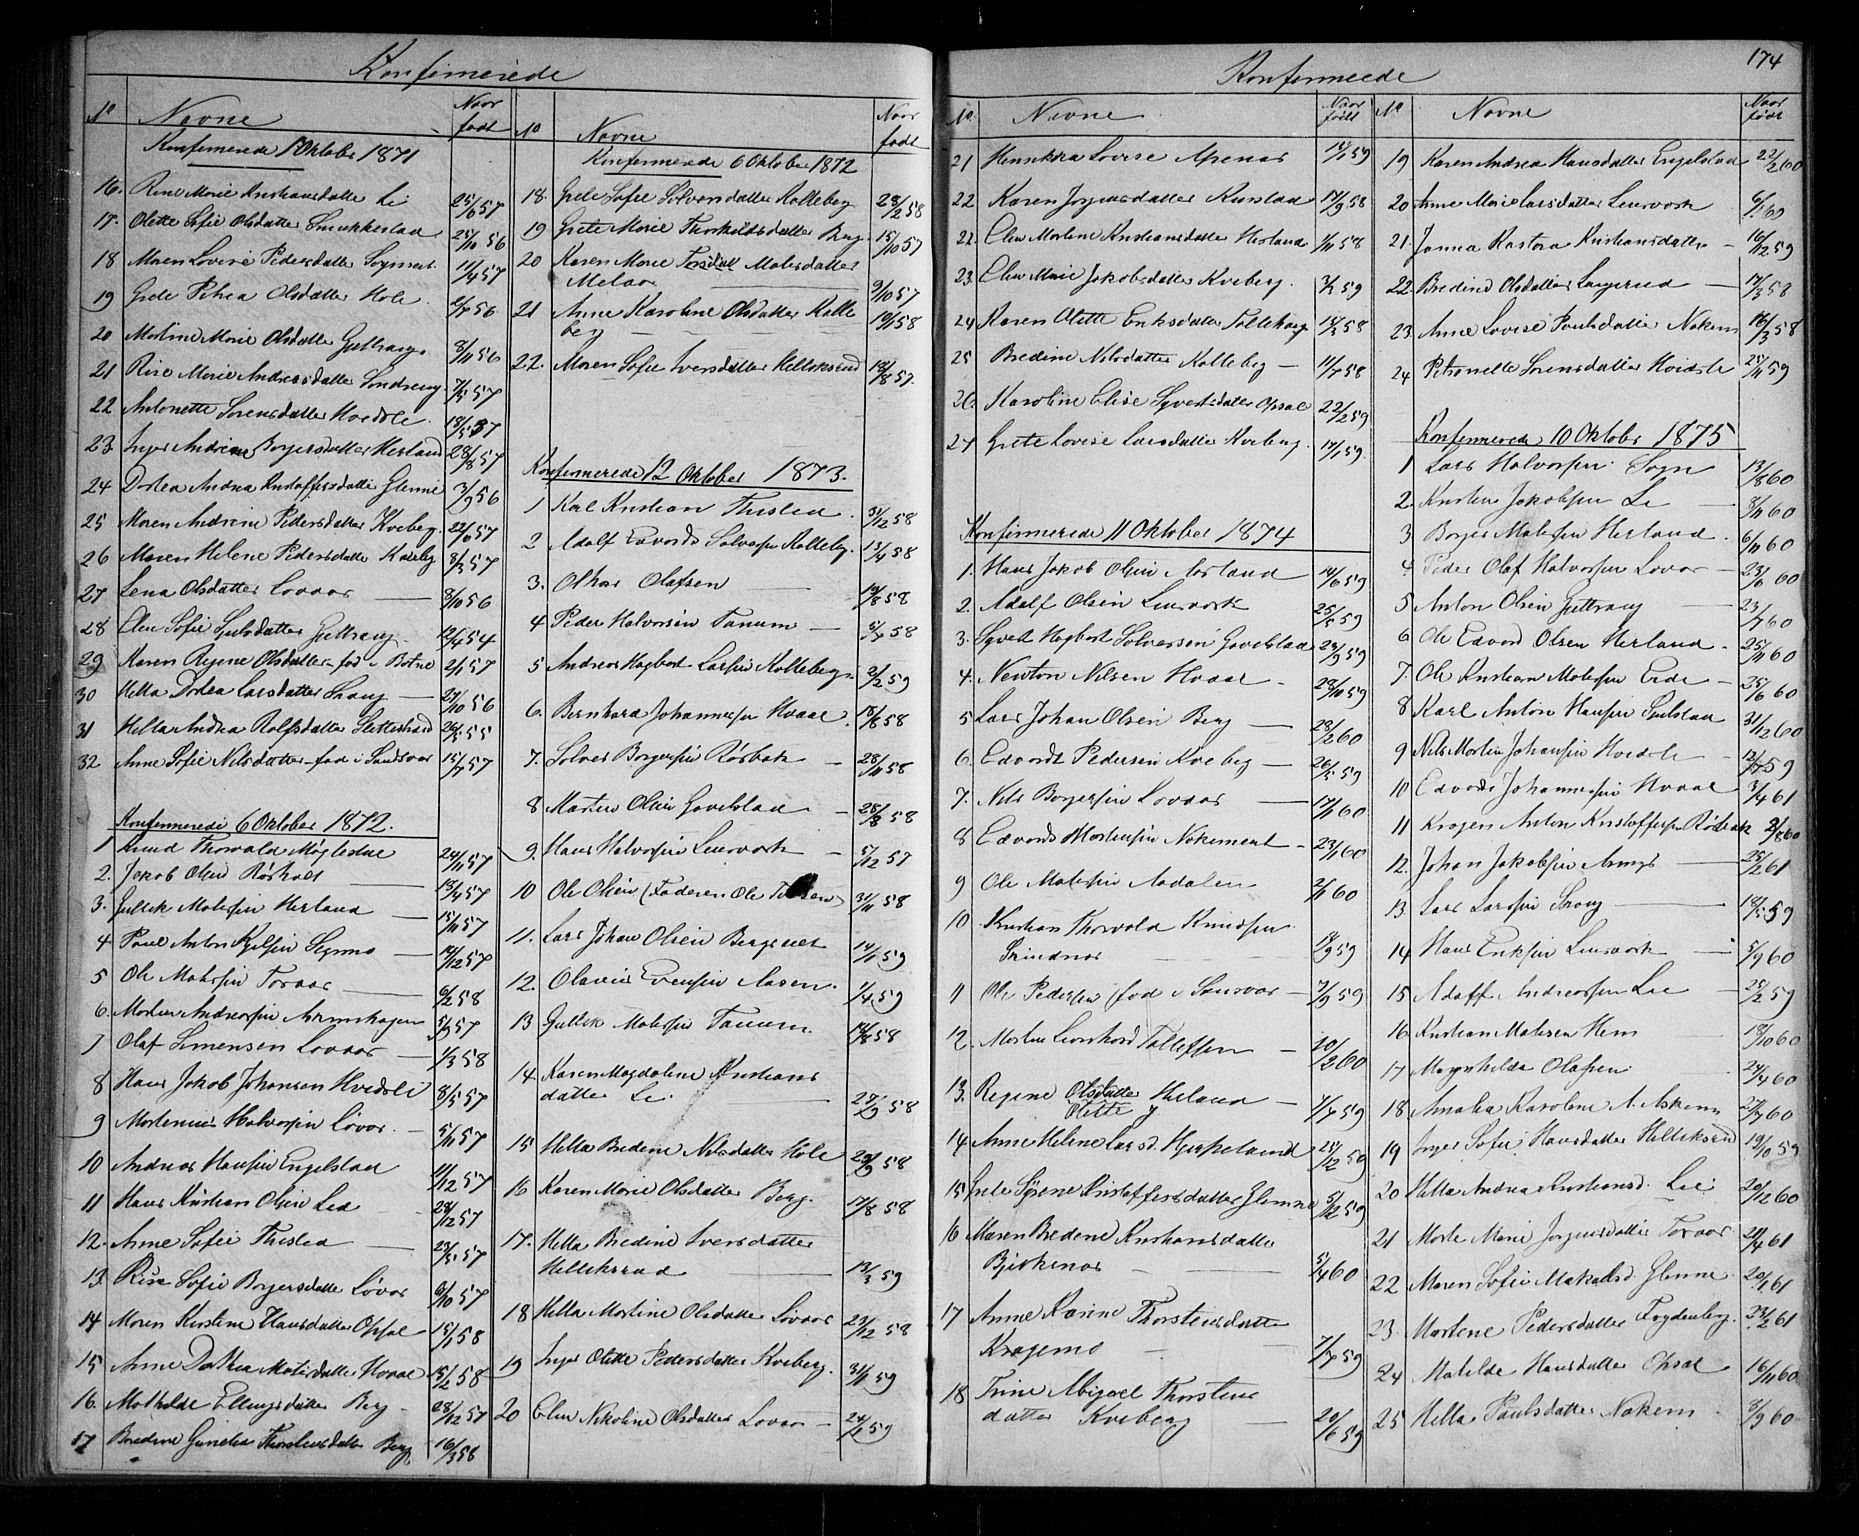 Konfirmerede
No Navne Naar født
Konfirmerede 1 Oktober 1871
16. Rine Marie Kristiansdatter Li 25/6 57
17. Olette Sofie Olsdatter Smukkestad 25/10 56
18 Maren Lovise Pedersdatter 11/4 57
19 Grete Petrea Olsdatter Hole 2/7 56
20 Martine Marie Olsdatter 8/11 56
21 Rine Marie Andreasdatter 7/5 57
22 Antonette Sørensdatter Hvidsle 18/5 57
23 Inger Andrine Borgersdatter Herland 28/8 57
24 Dortea Andrea Kristoffersdatter Glenne 3/9 56
25 Maren Andrine Pedersdatter Kveberg 22/6 57
26 Maren Helene Pedersdatter Kveberg 3/3 57
27 Lena Olsdatter Lovaas 8/10 56
28 Elen Sofie 12/4 54
29 Karen Regine Olsdatter fød i Botne 2/1 57
30 Hella Dortea Larsdatter Skaug 27/10 56
31 Hella Andrea Rolfsdatter 26/5 55
32 Anne Sofie Nilsdatter fød i Sandsvær 15/7 57
Konfirmerede 6 Oktober 1872.
1 Knud Thorvald 24/11 57
2. Jakob Olsen Røsholt 13/4 57
3. Gullik Matesen Herland 15/11 57
4 Paul Anton 14/12 57
5 Ole Matesen Toraas 6/2 58
6. Morten Andreasen 5/3 57
7 Olaf Simensen Lovaas 1/3 58
8 Hans Jakob Johansen Hvidsle 8/5 57
9 Martenius Halvorsen Lovas 5/11 57
10 Andreas Hansen Engelstad 11/12 57
11 Hans Kristian Olsen Lea 28/12 57
12. Anne Sofie Thislea 23/5 57
13. Rine Sofie Borgersdatter Løvas 6/10 57
14 Maren Kirstine Hansdatter Opsal 15/1 58
15 Anne Dorthea Matisdatter Hvaal 15/2 58
16. Mathilde Ellingsdatter Berg 28/12 57
17 Bredine Gunelia Thorstensdatter Berg 16/3 58
No Navne Naar født
Konfirmerede 6 Oktober 1872
18. Grete Sofie Solversdatter Kolleberg 28/2 58
19 Grete Marie Thorkildsdatter Berg 15/10 57
20 Karen Marie Matisdatter
Melaas 9/10 57
21 Anne Karoline Olsdatter Kolle
berg 19/1 58
22. Maren Sofie Iversdatter Helleksrud 18/8 57.
Konfirmerede 12 Oktober 1873.
1 Karl Kristian Thislea 31/12 58
2 Adolf Edvard Solversen Kolleberg. 13/4 58
3. Othar Olafsen 19/8 58
4 Peder Halvorsen Tanum 5/7 58
5 Andreas Hagbart Larsen Kolleberg 2/2 59
6. Bernhard Johannesen Hvaal 18/8 58
7. Solver Borgersen Røsbak 28/11 58
8 Martin Olsen Gavelstad 28/8 58
9. Hans Halvorsen Leurvork 5/12 57
10 Ole Olsen (Faderen Ole 31/11 58
11. Lars Johan Olsen 14/1 59
12. Olavus Evensen Aasen. 1/4 59
13 Gullik Matesen Tanum 14/8 58
14 Karen Magdalene Kristians
datter Li. 27/9 58
15 Hella Bredine Nilsdatter Hole 20/9 58
16 Karen Marie Olsdatter Berg. 17/8 58
17. Hella Bredine Iversdatter
Helleksrud 13/3 59
18 Hella Martine Olsdatter Lovaas 23/12 58
19 Inger Olette Pedersdatter Kveberg. 31/1 59
20 Elen Nikoline Olsdatter Lovas 24/1 59
174
Konfirmerede
No. Navne Naar født
21 Henrikka Lovise Apenas 14/1 59
22 Karen Jørgensdatter 17/9 58
22. Elen Martine Kristiansdatter Herland 1/11 58
23. Elen Marie Jakobsdatter Kveberg. 3/1 59
24 Karen Olette Eriksdatter 15/3 58
25 Bredine Nilsdatter Kolleberg 11/7 58
26. Karoline Elise Syvertsdatter Opsal 22/2 59
27 Grete Lovise Larsdatter Kveberg 17/1 59.
Konfirmerede 11 Oktober 1874
1. Hans Jakob Olsen 14/6 59
2. Adolf Olsen Leurvork 25/5 59
3. Syvert Hagbart Solversen Gavelstad 24/9 59
4. Newton Nilsen Hvaal 28/10 59
5 Lars Johan Olsen Berg 28/2 60
6. Edvardt Pedersen Kveberg 26/5 59
7. Nils Borgersen Lovaas 17/11 60
8 Edvard Mortensen 23/11 60
9 Ole Matesen Aadalen 2/11 60
10 Kristian Thorvald Knudsen
18/9 59
11 Ole Pedersen (fød i Sansvær 7/9 59
12. Martin Leonhard Tollefsen 10/2 60
13. Regine Olsdatter Herland 7/7 59
Olette
14 Anne Helene Larsd. 24/12 59
15 Grete Sørene Kristoffersdatter Glenne 5/12 59
16 Maren Bredine Kristiansdatter
Bjerkenas 5/4 60
17 Anne Karine Thorstensdatter
Kragemo 7/7 59
18 Trine Abigael Thorstens
datter Kveberg 20/6 59
No Navne Naar født
19 Karen Andrea Hansdatter Engelstad 22/2 60
20 Anne Marie Larsdatter Leurvork 6/1 60
21. Janna Kastora Kristiansdatter 16/12 59
22. Bredine Olsdatter Langerud 17/3 58
23. Anne Lovise Paulsdatter Nakem 16/3 58
24 Petronelle Sørensdatter Hvidsle 25/11 59
Konfirmerede 10 Oktober 1875
1 Lars Halvorsen Sogn 13/8 60
2. Kristen Jakobsen Li 8/11 60
3 Borger Matesen Herland. 6/11 60
4. Peder Olaf Halvorsen Lovas 23/6 60
5 Anton Olsen 23/7 60
6 Ole Edvard Olsen Herland 25/11 60
7. Ole Kristian Matesen Eide 25/6 60
8 Karl Anton Hansen 31/12 60
9 Nils Martin Johansen Hvidsle 12/7 59
10 Edvard Johannesen Hvaal 3/4 61
11 Kragen Anton Kristoffersen Røsbak 2/8 60
12. Johan Jakobsen 25/2 61
13. Lars Larsen Skaug 18/5 59
14 Hans Eriksen Leurvork 5/9 60
15 Adolf Andreasen Lie 25/2 59
16 Kristian Matesen Hem 18/10 60
17 Magnhilda Olafsen 24/4 60
18 Amalia Karoline A. Askem 27/7 60
19 Inger Sofie Hansdatter Helleksrud 19/10 59
20 Hella Andrea Kristiansd. Lie 20/12 60
21 Marte Marie Jørgensdatter Toraas 21/4 61
22 Maren Sofie Glenne 20/1 61
23. Martene Pedersdatter Frydenberg. 23/2 61
24 Matilde Hansdatter Opsal 16/11 60
25 Hella Paulsdatter Nakem 3/9 60